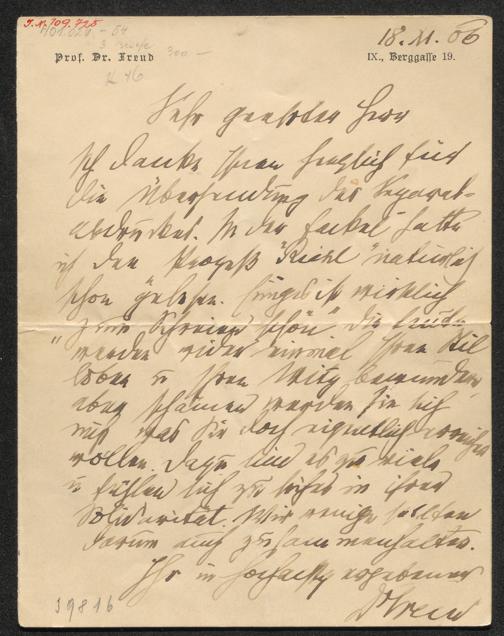 J.N. 109.725
Prof. Dr. Freud
18. XI. 06
IX., Berggasse 19.
300 —
Sehr geehrter Herr
Ich danke Ihnen herzlich für
die Übersendung des Separat-
abdruckes. In der Fackel hatte
ich den Prozeß "Riehl" natürlich
schon gelesen. Einiges ist wirklich
"zum Schreien schön". Die Leute
werden wieder einmal Ihren Stil
loben u Ihren Witz bewundern,
aber schämen werden sie sich
nicht, was Sie doch eigentlich erreichen
wollen. Dazu sind es zu viele
u fühlen sich zu sicher in ihrer
Solidarität. Wir wenige sollten
darum auch zusammenhalten.
Ihr in Hochachtg ergebener
Dr Freud
39816